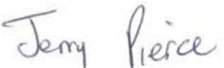 Jerry Pierce